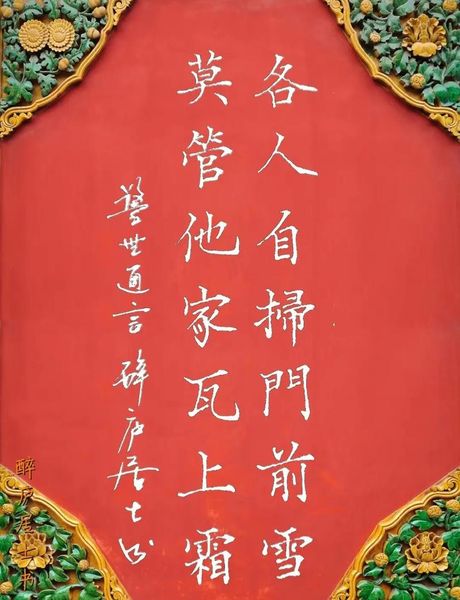 各人自掃門前雪
莫管他家瓦上霜
警世通言 醉庐居士书
醉庐居士书